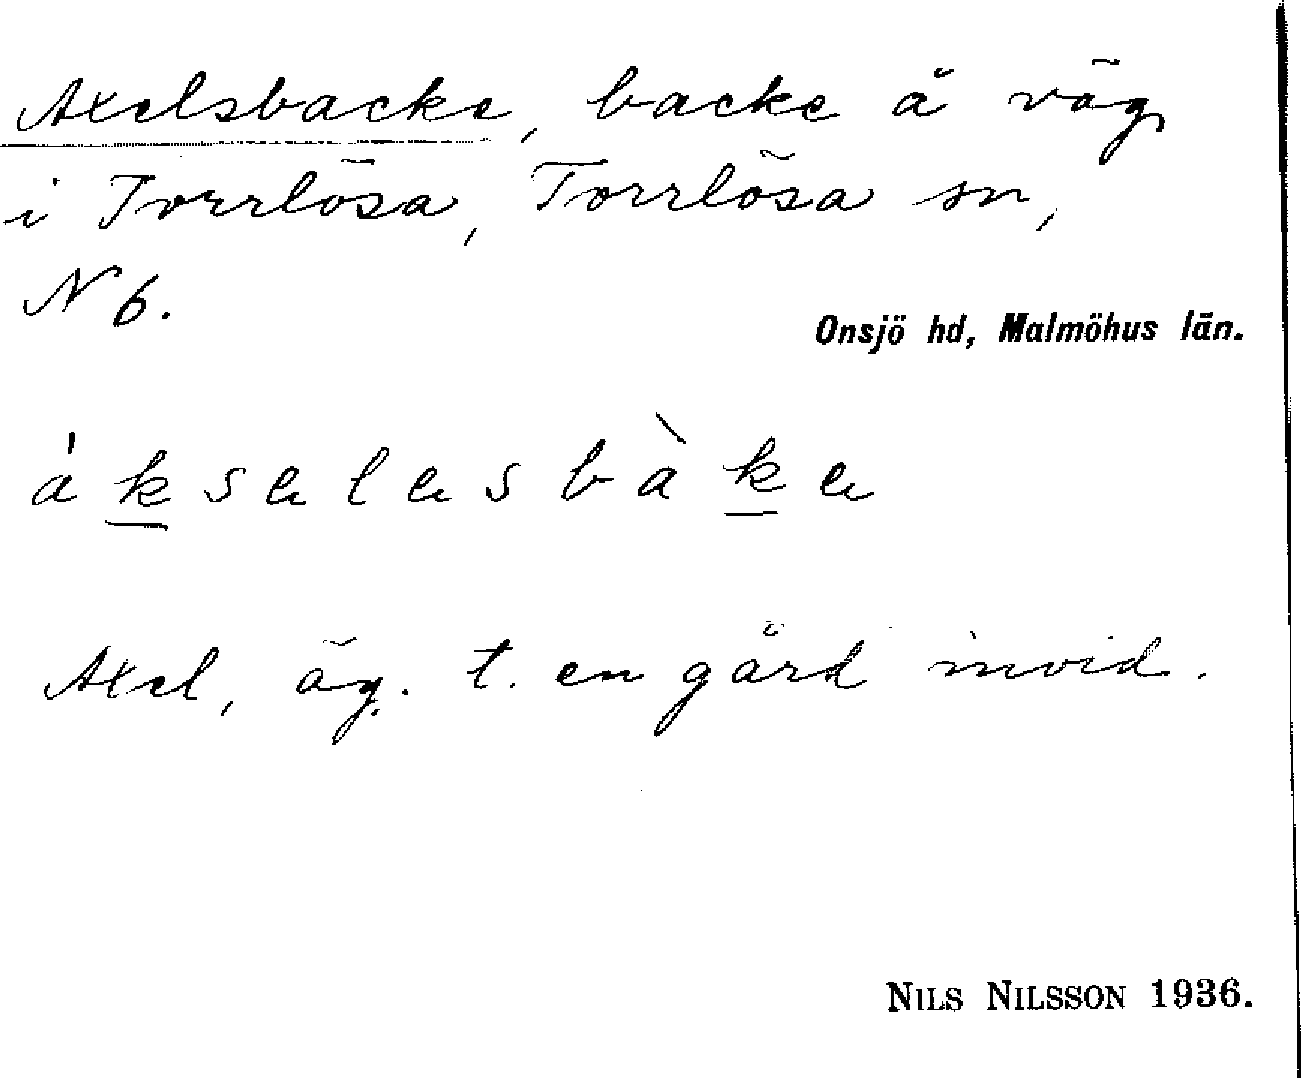 Axelsbacke, backe å väg
i Torrlösa, Torrlösa sn,
N 6.
Onsjö hd, Malmöhus län.
áksɐlɐsbàkɐ
Axel, äg. t. en gård invid.
NILS NILSSON 1936.